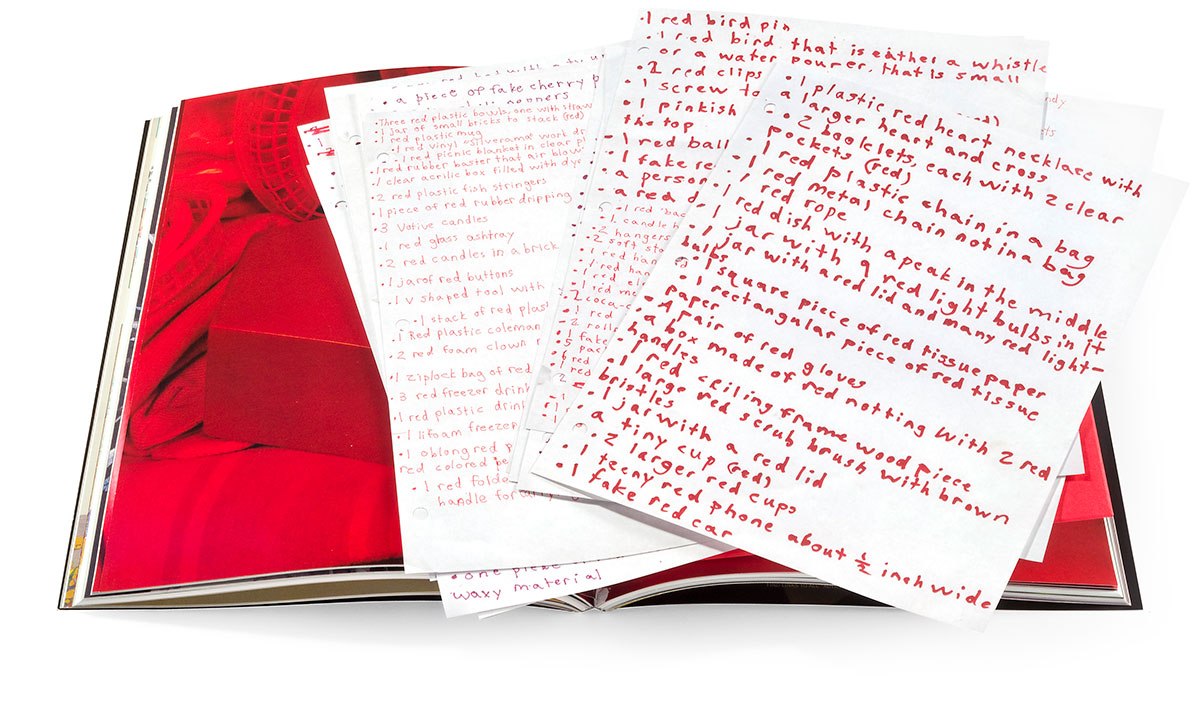 • a piece of fake cherry p
•Three red plastic bowls one with straw
•1 jar of small bricks to stack (red)
•1 red plastic mug
•1 red vinyl "Silverama work dr
•1 red picnic blanket in clear p
•1 red rubber baster that air blow
•1 clear acrilic box filled with dye
•2 red plastic fish stringers
•1 piece of red rubber dripping
•3 Votive candles
•1 red glass ashtray
•2 red candles in a brick
•1 jar of red buttons
•1 v shaped tool with
•1 stack of red plast
•1 Red plastic coleman
•2 red foam clown
•1 ziplock bag of red
•3 red freezer drink
•1 red plastic drin
•1 lifoam freezer
•1 oblong red p
red colored
•1 red folde
handle for
• one piece
waxy material
•1 red bird pin
•1 red bird that is eather a whistle
or a water pourer, that is small
•2 red clips
1 screw to
•1 pinkish
the top
•1 red ball
•1 fake re
•a person
•a red d
•1 red
•1 candle
•2 hangers
•2 soft sta
•1 red han
•1 red
•2 coca-c
•1 red
•2 rolle
•1 fake
•1 plastic red heart necklace with
a larger heart and cross
•2 booklelets, each with 2 clear
pockets (red)
•1 red plastic chain in a bag
•1 red metal chain not in a bag
1 red rope
•1 red dish with a peak in the middle
•1 jar with 9 red light bulbs in it
•1 jar with a red lid and many red light-
bulbs
•1 square piece of red tissue paper
•1 rectangular piece of red tissue
paper
•A pair of red gloves
•a box made of red notting with 2 red
handles
•1 red ceiling frame wood piece
•1 large red scrub brush with brown
bristles
•1 jar with a red lid
a tiny cup (red)
•2 larger red cups
•1 teeny red phone about ½ inch wide
fake red car